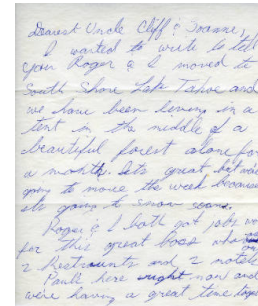 Dearest Uncle Cliff & Joanne,
I wanted to write & tell
you Roger & I moved to
South Shore Lake Tahoe and
we have been living in a
tent in the middle of a
beautiful forest alone for
a month. Its great, but we're
going to move this week because
its going to snow soon.
Roger & I both got jobs
for this great boss who
2 Restraunts and 2 motels
Paul's here right now and
we're having a great time